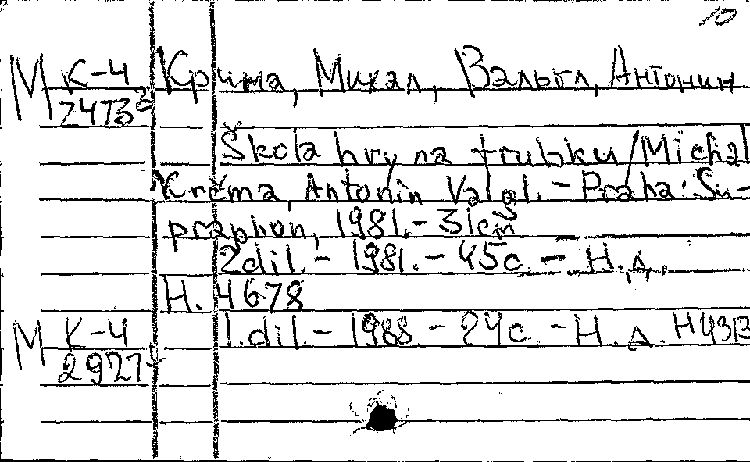 10
М К-4 Крима, Михал, Вальгл, Антонин
74736
Škola hry na trubku / Michal
Krčma, Antonín Valgl. - Praha: Su-
praphon, 1981. -
2díl. - 1981. - 45с. - Н. д.
Н. 4678
М К-4 1. díl. - 1988 - 24с. - Н. д. Н4313
2927